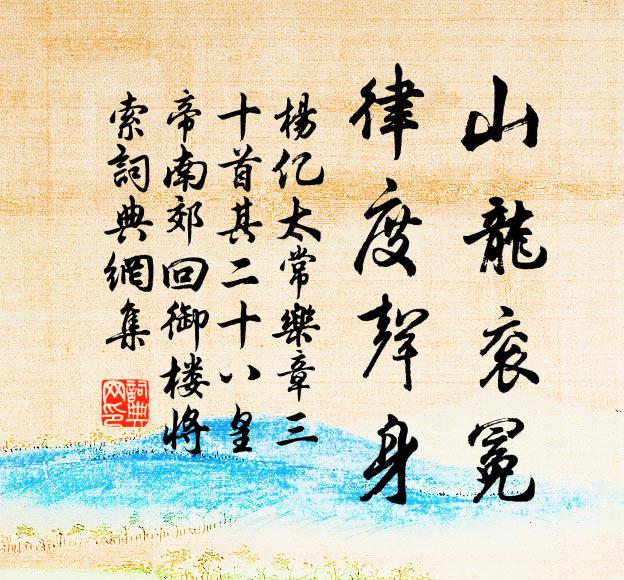 山龍衮冕
律度聲身
楊亿太常樂章三
十首其二十八皇
帝南郊回御楼將
索詞典網集
詞典
网印